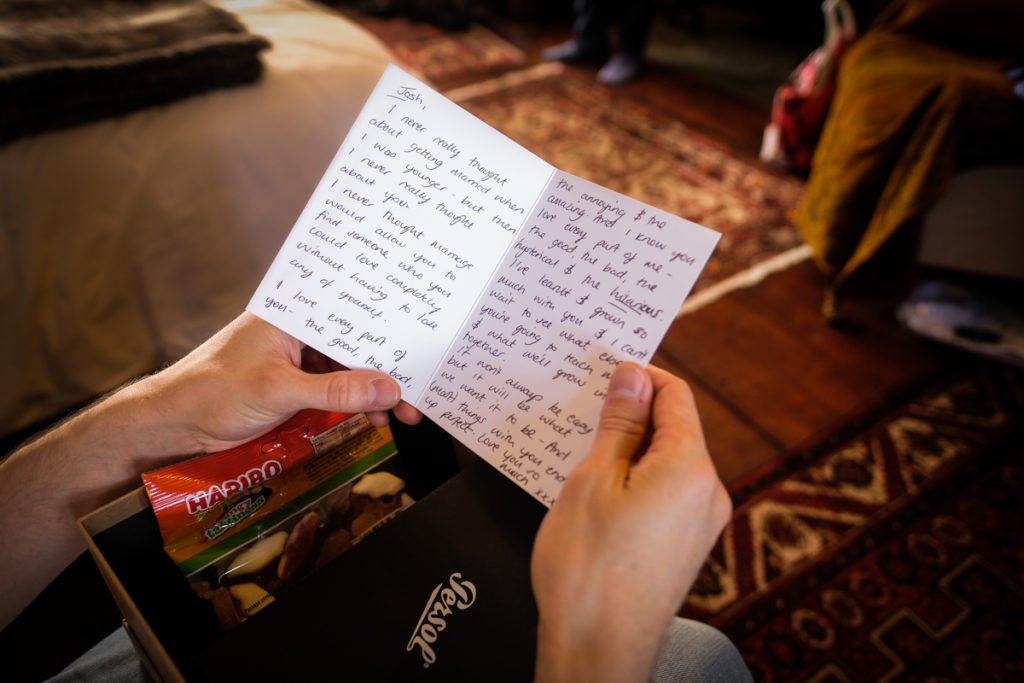 Josh,
I never really thought
about getting married when
I was younger - but then
I never really thought
about you.
I never thought marriage
would allow you to
find someone who you
could love completely
without having to lose
any of yourself.
I love every part of
you - the good, the bad,
the annoying & the
amazing. And I know you
love every part of me -
the good, the bad, the
hysterical & the hilarious.
I've learnt & grown so
much with you & I can't
wait to see what
you're going to teach
& what we'll grow in
together.
it won't always be easy
but it will be what
we want it to be - And
(most) things with you end
up perfect. Love you so
much xxx
HARIBO
Persol